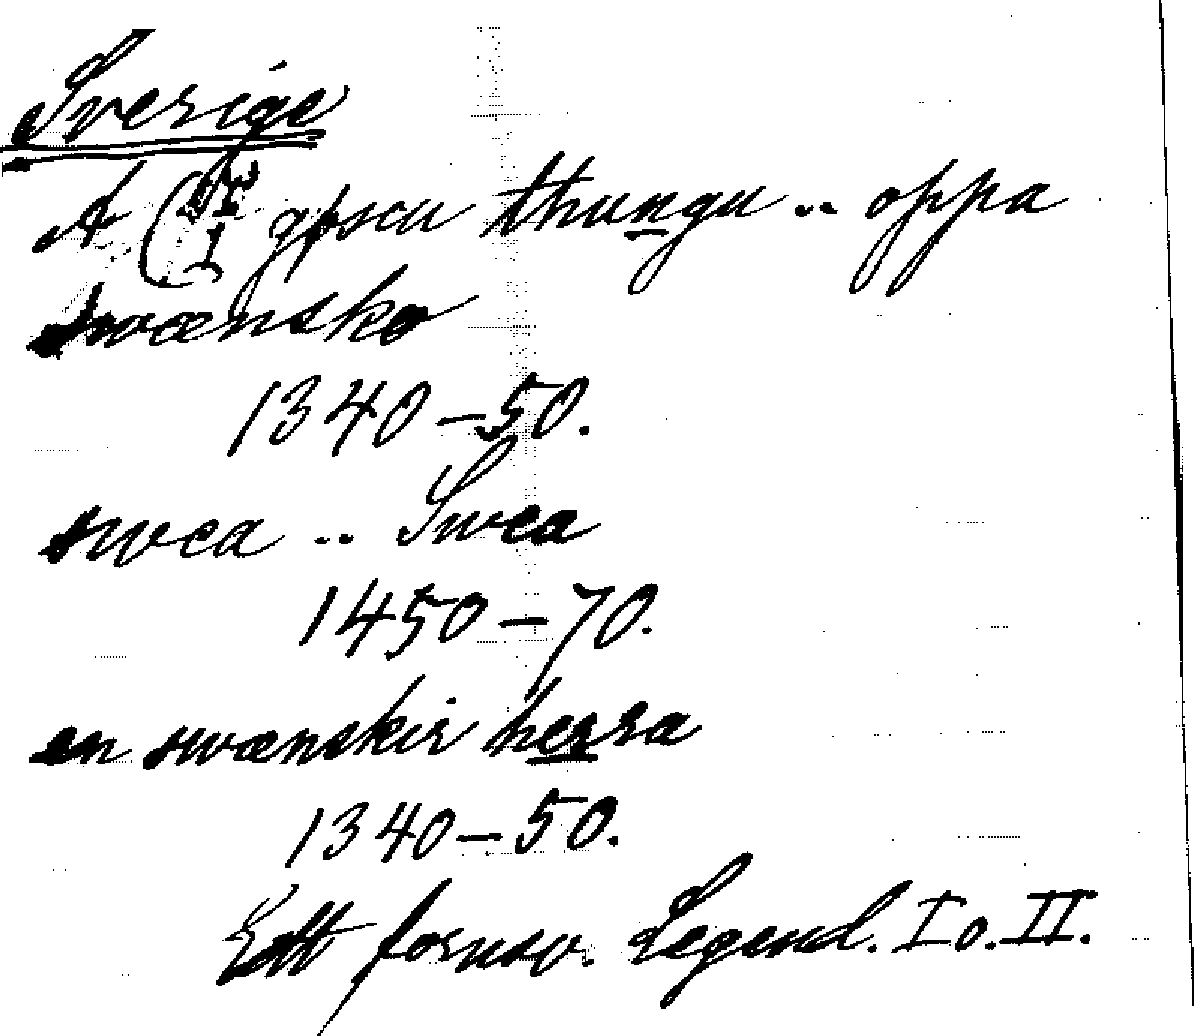 Sverige
A ( gpscu thungu .. oppa
swænsko
1340–50.
swea .. Swea
1450–70.
en swænskir herra
1340–50.
Ett fornsv. Legend. I o. II.